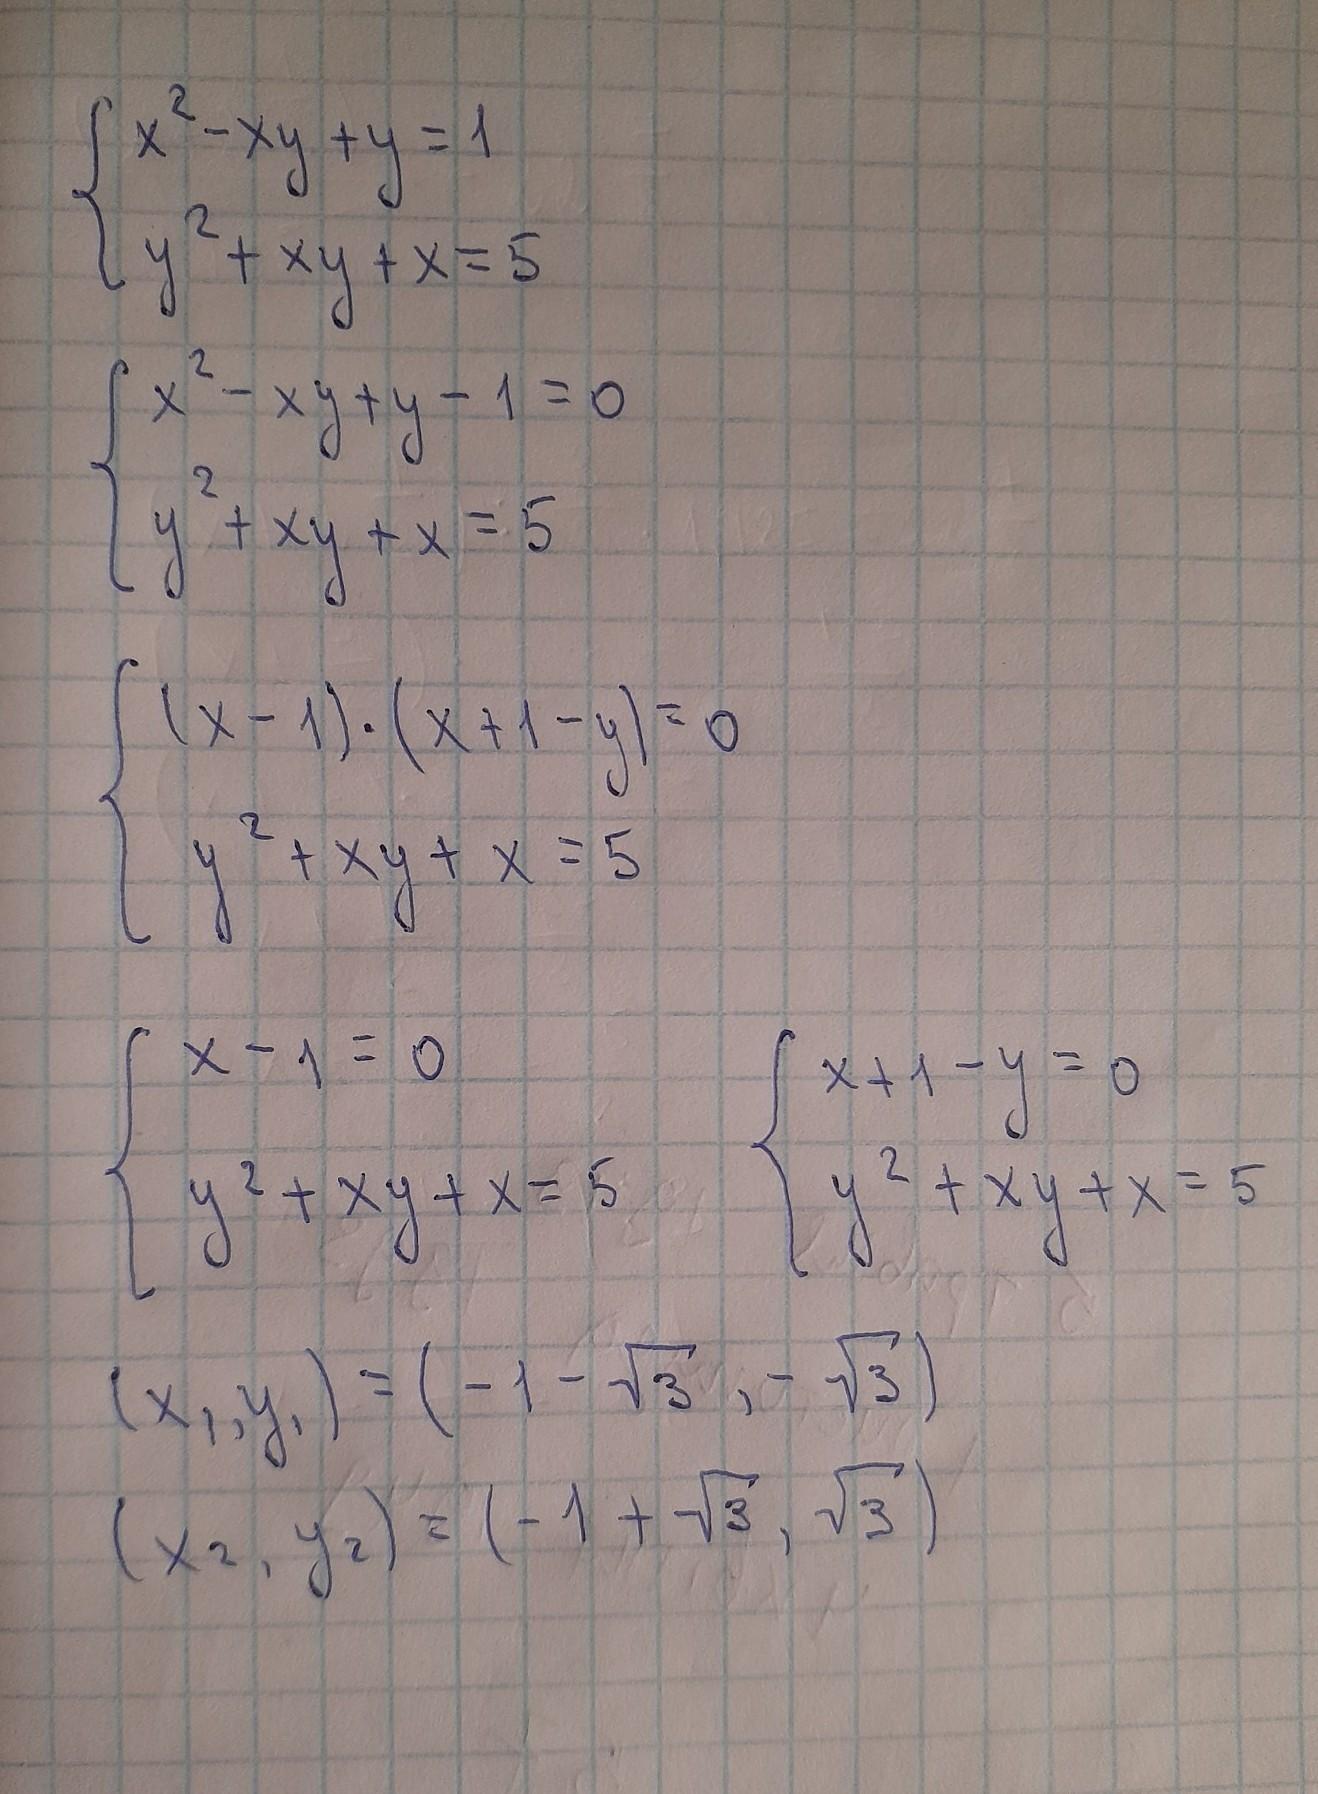 x² - xy + y = 1
y² + xy + x = 5
x² - xy + y - 1 = 0
y² + xy + x = 5
(x - 1) · (x + 1 - y) = 0
y² + xy + x = 5
x - 1 = 0
y² + xy + x = 5
x + 1 - y = 0
y² + xy + x = 5
(x₁, y₁) = (-1 - √3, -√3)
(x₂, y₂) = (-1 + √3, √3)